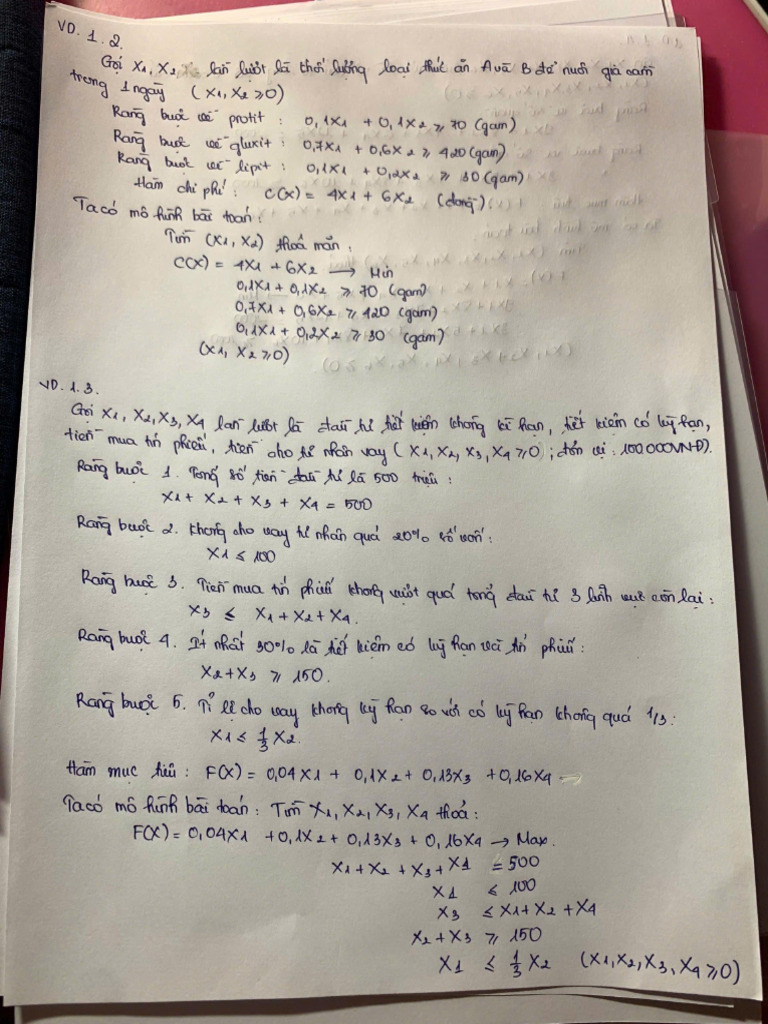 VD. 1.2.
Gọi X1, X2 lần lượt là khối lượng loại thức ăn A và B để nuôi gia cầm
trong 1 ngày (X1, X2 ≥ 0)
Ràng buộc về protit : 0,1X1 + 0,1X2 ≥ 70 (gam)
Ràng buộc về gluxit : 0,7X1 + 0,6X2 ≥ 420 (gam)
Ràng buộc về lipit : 0,1X1 + 0,2X2 ≥ 30 (gam)
Hàm chi phí : C(X) = 4X1 + 6X2 (đồng)
Ta có mô hình bài toán :
Tìm (X1, X2) thoả mãn :
C(X) = 4X1 + 6X2 → Min
0,1X1 + 0,1X2 ≥ 70 (gam)
0,7X1 + 0,6X2 ≥ 420 (gam)
0,1X1 + 0,2X2 ≥ 30 (gam)
(X1, X2 ≥ 0)
VD. 1.3.
Gọi X1, X2, X3, X4 lần lượt là đầu tư tiết kiệm không kì hạn, tiết kiệm có kỳ hạn,
tiền mua tín phiếu, tiền cho tư nhân vay (X1, X2, X3, X4 ≥ 0) ; đơn vị : 100.000VNĐ).
Ràng buộc 1. Tổng số tiền đầu tư là 500 triệu :
X1 + X2 + X3 + X4 = 500
Ràng buộc 2. Không cho vay tư nhân quá 20% số vốn :
X1 ≤ 100
Ràng buộc 3. Tiền mua tín phiếu không vượt quá tổng đầu tư 3 lĩnh vực còn lại :
X3 ≤ X1 + X2 + X4.
Ràng buộc 4. Ít nhất 30% là tiết kiệm có kỳ hạn và tín phiếu :
X2 + X3 ≥ 150.
Ràng buộc 5. Tỉ lệ cho vay không kỳ hạn so với có kỳ hạn không quá 1/3 :
X1 ≤ 1/3 X2.
Hàm mục tiêu : F(X) = 0,04X1 + 0,1X2 + 0,13X3 + 0,16X4
Ta có mô hình bài toán : Tìm X1, X2, X3, X4 thoả :
F(X) = 0,04X1 + 0,1X2 + 0,13X3 + 0,16X4 → Max.
X1 + X2 + X3 + X1 = 500
X1 ≤ 100
X3 ≤ X1 + X2 + X4
X2 + X3 ≥ 150
X1 ≤ 1/3 X2 (X1, X2, X3, X4 ≥ 0)